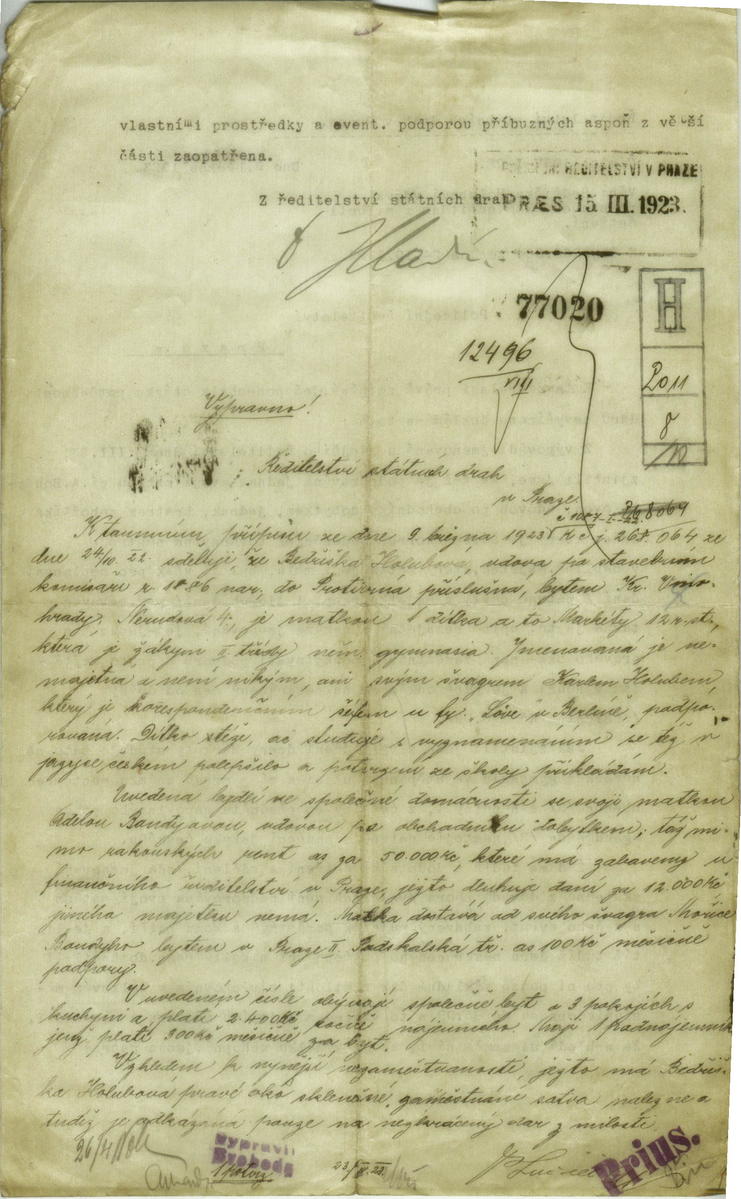 vlastními prostředky a event. podporou příbuzných aspoň z větší
části zaopatřena.
ŘEDITELSTVÍ V PRAZE
Z ředitelství státních drah
PRÆS 15 III. 1923.
77020
H
12496
VIII
2011
8
Vypravno!
Ředitelství státních drah
v Praze.
K tamnímu přípisu ze dne 9. března 1923 k č.j. 268.064 ze
dne 24/10 22. sděluji, že Bedřiška Holubová, vdova po stavebním
komisaři r. 1886 nar., do Protivína příslušná, bytem Kr. Vino-
hrady, Nerudová 4., je matkou 1 dítka a to Markéty 12 r. st.,
která je žákyní II. třídy něm. gymnasia. Jmenovaná je ne-
majetna a není nikým, ani svým švagrem Karlem Holubem,
který je korespondenčním šéfem u fy. "Löve" v Berlíně, podpo-
rovaná. Dítko stěže, ač studuje s vyznamenáním se též v
jazyce českém polepšilo a potvrzení ze školy přikládám.
Uvedená bydlí ve společné domácnosti se svojí matkou
Adelou Bandyovou, vdovou po obchodníku dobytkem; táž mi-
mo rakouských rent as za 50.000 Kč, které má zabaveny u
finančního ředitelství v Praze, ježto dluhuje daní za 12.000 Kč
jiného majetku nemá. Matka dostává od svého švagra Mořice
Bandyho bytem v Praze II. Podskalská tř. as 100 Kč měsíčně
podpory.
V uvedeném čísle obývají společně byt o 3 pokojích s
kuchyní a platí 2400 Kč ročně nájemného. Mají 1 podnájemníka
jenž platí 300 Kč měsíčně za byt.
Vzhledem k nynější nezaměstnanosti, ježto má Bedřiš-
ka Holubová pravé oko skleněné, zaměstnání sotva nalezne a
tudíž je odkázána pouze na dar z milosti.
26/4
Vypravil:
Svoboda
Prius.